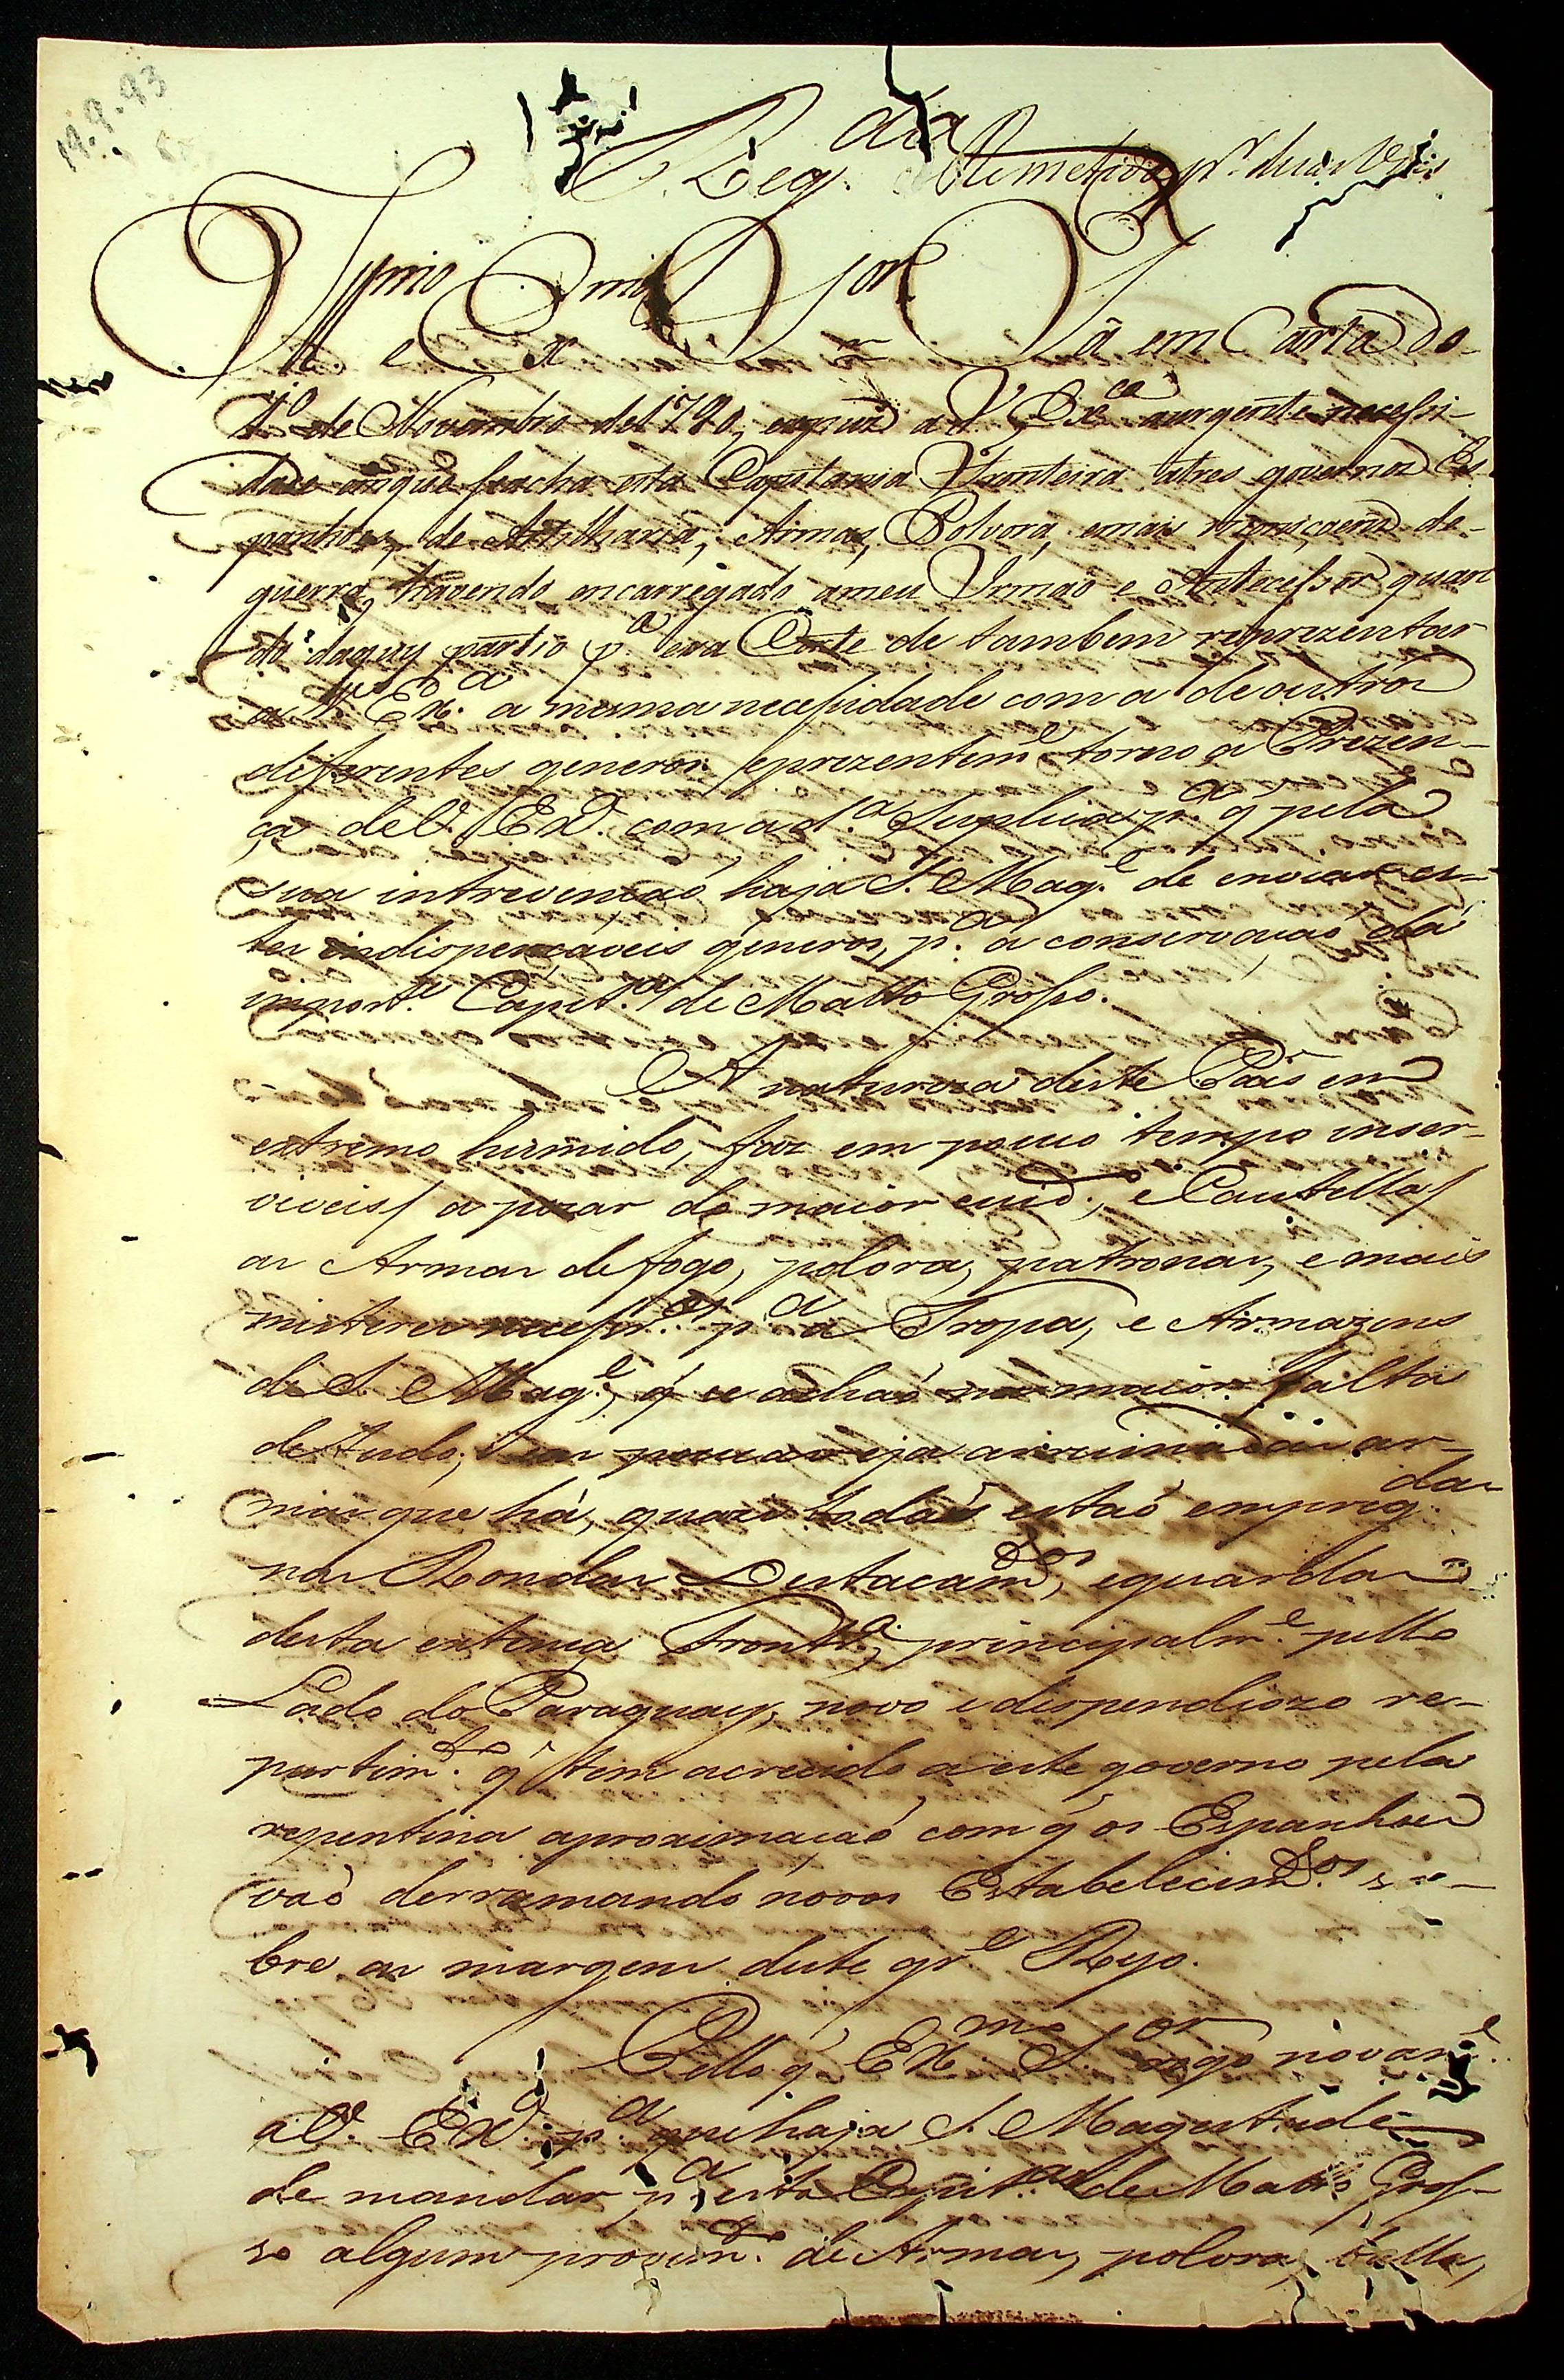 19.9.93
Reg.da Remetida p.r duas Vias
Ill.mo e Ex.mo Snr. Já em Carta do
1.º de Novembro de 1790, expuz a V. Ex.ca a urgente necessi-
dade em que se acha esta Capitania Fronteira a tres governos Es-
panhoes, de Artilharia, Armas, Polvora, e mais moniçoens de
guerra, havendo encarregado a meu Irmaõ e Antecessor quan
do daqui partio p.a essa Corte de tambem reprezentar
a V. Ex.a a mesma necessidade com a de outros
differentes generos e prezentem.e torno a Prezen-
ça de V. Ex.a com a d.a Suplica p.a q̃ pela
sua intrevençaõ haja S. Mag.e de enviar es-
tes indispençaveis generos, p.a a conservaçaõ da
import.e Capit.a de Matto Grosso.
A natureza deste Pais em
extremo humido, faz em pouco tempo inser-
viveis / a pezar do maior cuid.o, e Cautella /
as Armas de fogo, polvora, patronas, e mais
misteres necess.os p.a a Tropa, e Armazens
de S. Mag.e, q̃ se achaõ na maior falta
de tudo; e as poucas e ja arruinadas ar-
mas que há, quazi todas estaõ empreg.das
nas Rondas Destacam.tos, e guardas
desta extença Front.ra, principalm.e pello
Lado do Paraguay, novo e dispendiozo re-
partim.to q̃ tem acrecido a este governo pela
repentina aproximaçaõ com q̃ os Espanhoes
vaõ derramando novos Estabelecim.tos so-
bre as margens deste gr.e Ryo.
Pello q̃ Ex.mo S.or rogo novam.e
a V. Ex.a p.a que haja S. Magestade
de mandar p.a esta Capit.a de Matto Gros-
so algum provim.to de Armas, polvora, balla,